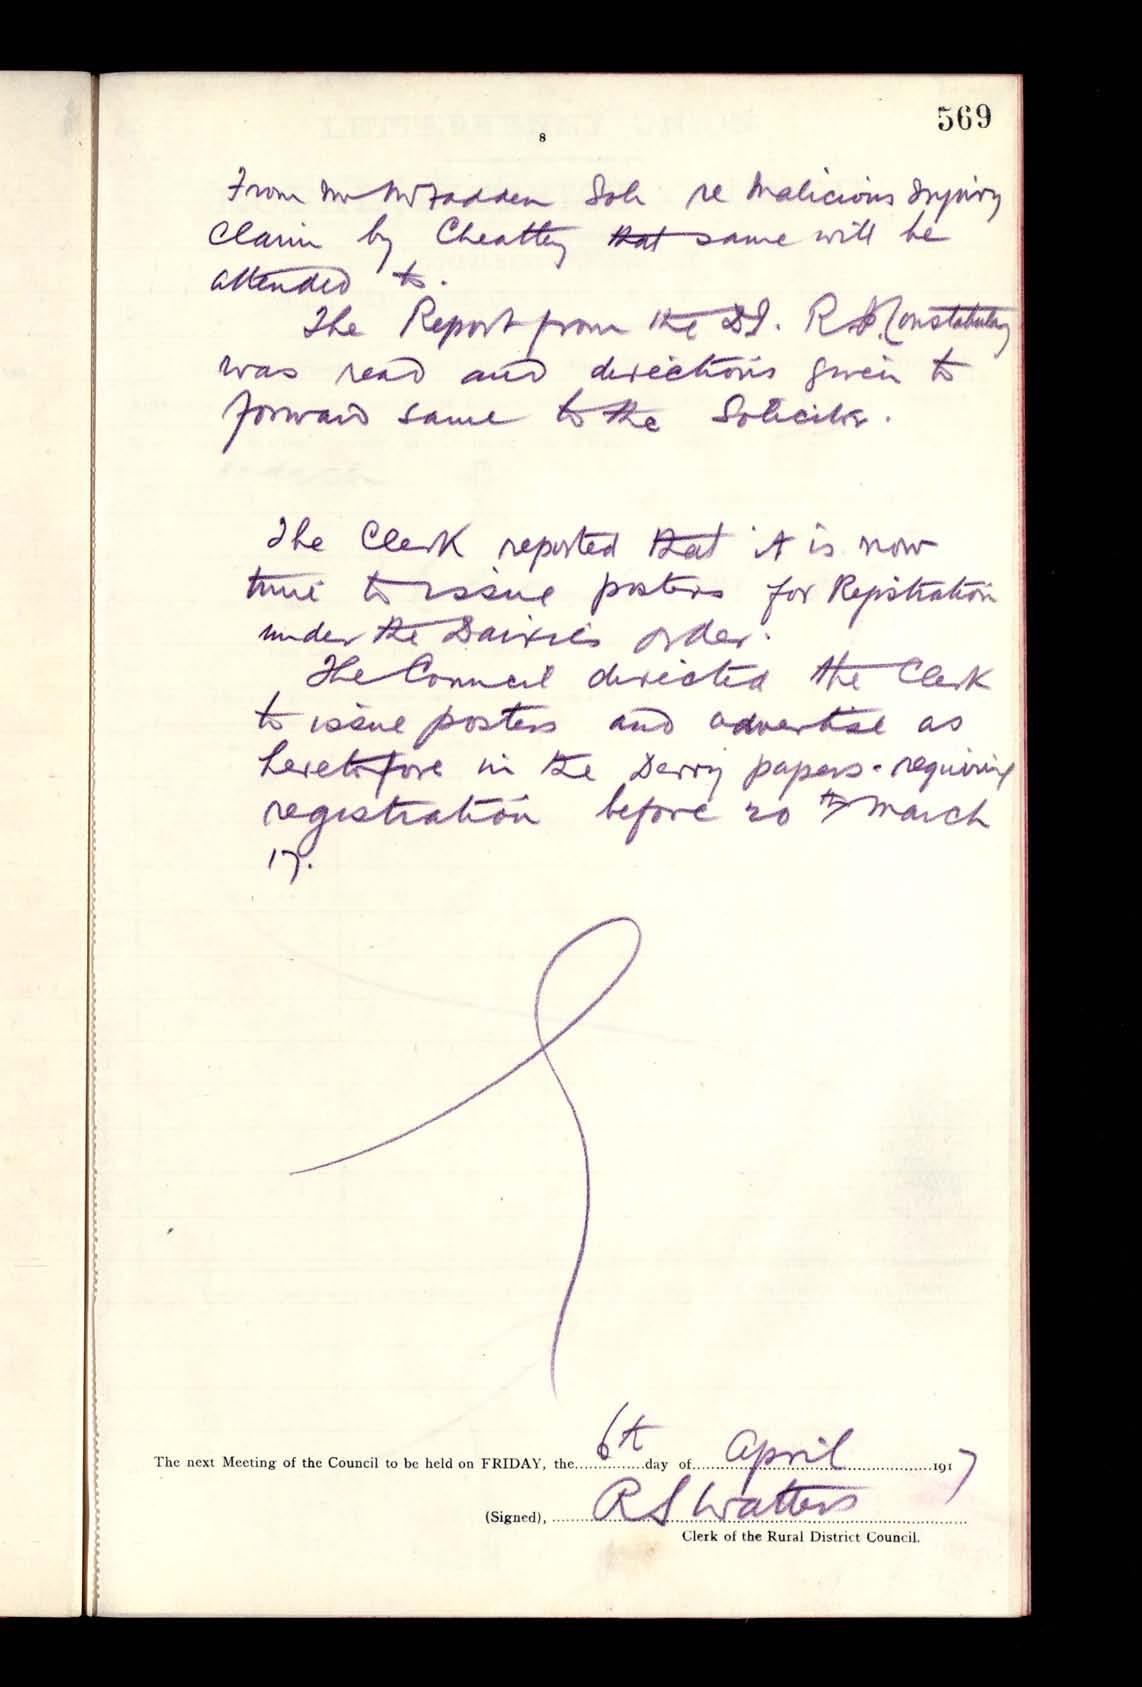 569
8
From Mr McFadden Solr re Malicious Injury
Claim by Cheattey that same will be
attended to.
The Report from the D.I. R I Constabulary
was read and directions given to
forward same to the Solicitor.
The Clerk reported that it is now
time to issue posters for Registration
under the Dairies order.
The Council directed the Clerk
to issue posters and advertise as
heretofore in the Derry papers - requiring
registration before 20th March
17.
The next Meeting of the Council to be held on FRIDAY, the 6th day of April 1917
(Signed), R S Watters
Clerk of the Rural District Council.